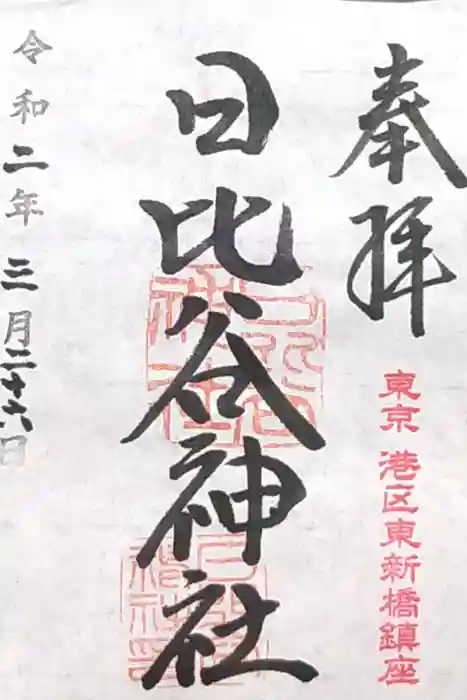 奉拝
東京 港区東新橋鎮座
日比谷神社
令和二年三月二十六日